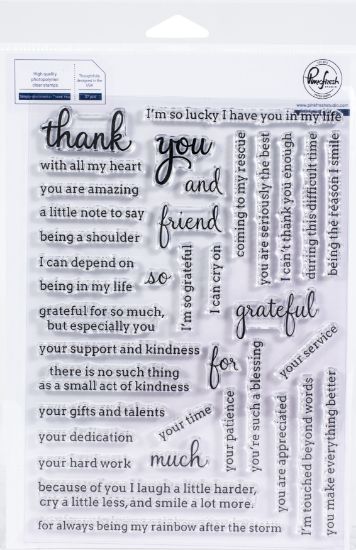 High quality
photopolymer
clear stamps
Thoughtfully
designed in the
USA
Pinkfresh
studio
www.pinkfreshstudio.com
I'm so lucky I have you in my life
thank
you
with all my heart
and
you are amazing
a little note to say
friend
being a shoulder
I can depend on
so
being in my life
I'm so grateful
I can cry on
coming to my rescue
you are seriously the best
I can't thank you enough
during this difficult time
being the reason I smile
grateful
grateful for so much,
but especially you
your support and kindness
for
your service
there is no such thing
as a small act of kindness
your gifts and talents
your time
your dedication
much
your hard work
your patience
you're such a blessing
you are appreciated
I'm touched beyond words
you make everything better
because of you I laugh a little harder,
cry a little less, and smile a lot more.
for always being my rainbow after the storm